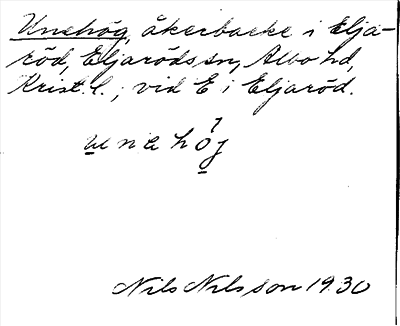 Unehög, åkerbacke i Elja-
röd, Eljarödssn, Albo hd,
Krist. l.; vid E i Eljaröd.
une höj
Nils Nilsson 1930